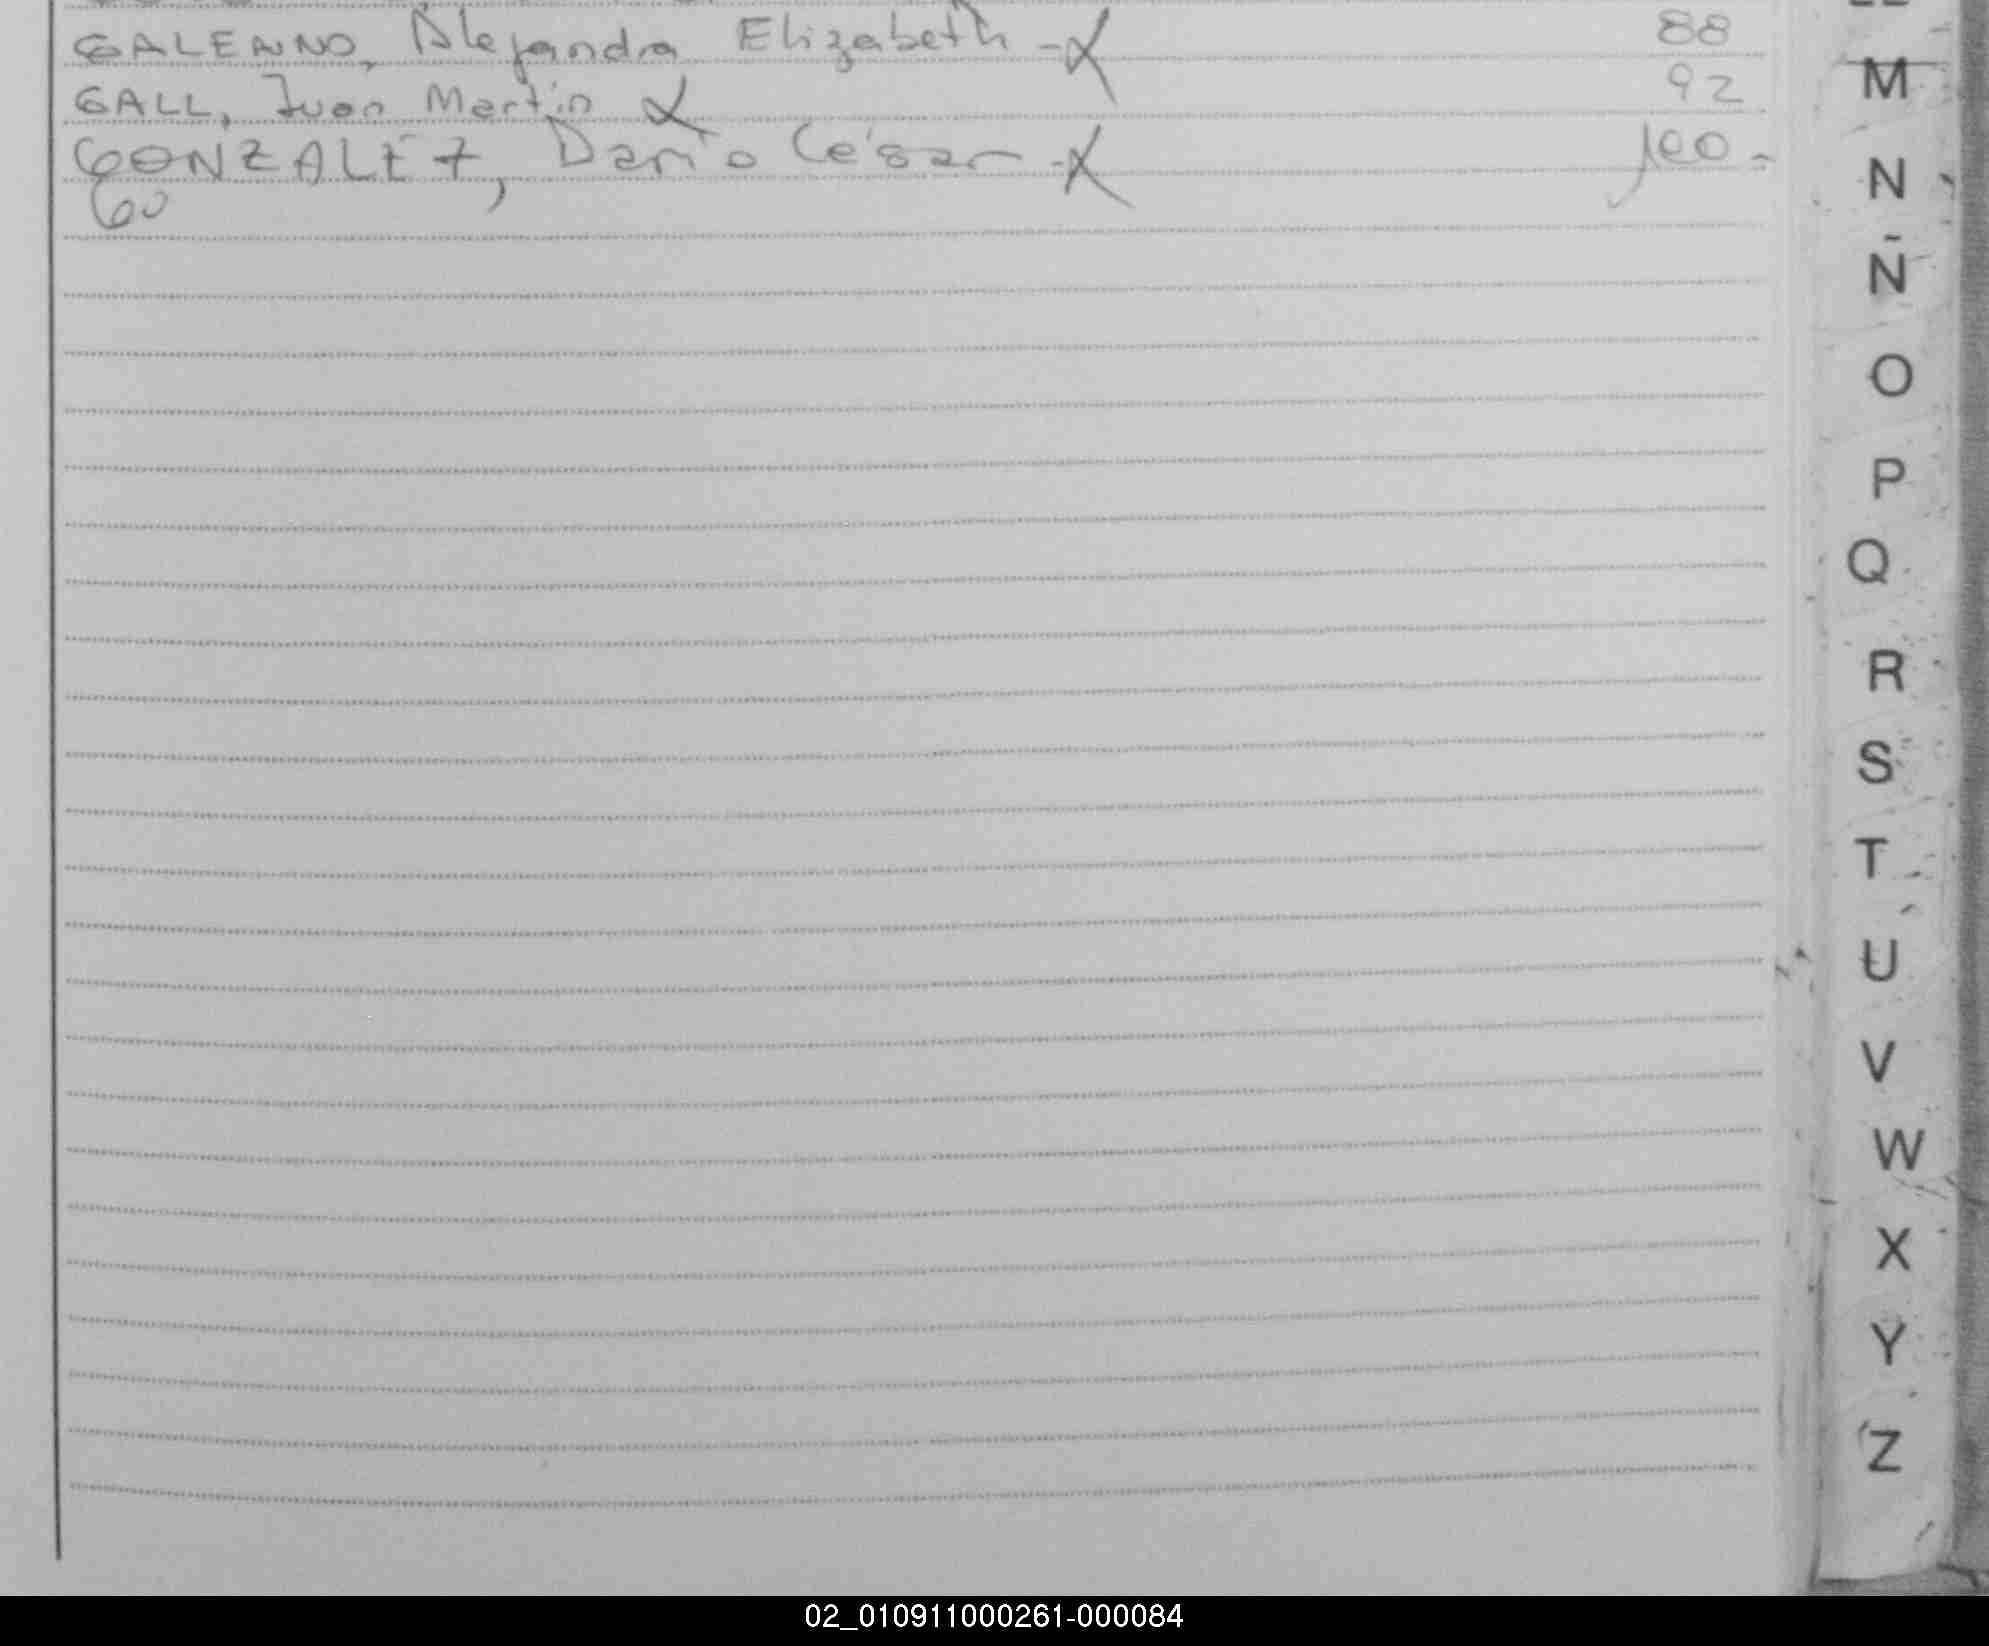 GALEANO, Alejandra Elizabeth - 88
GALL, Juan Martín 92
GONZALEZ, Darío César - 100.-
Go
M
N
Ñ
O
P
Q
R
S
T
U
V
W
X
Y
Z
02_010911000261-000084